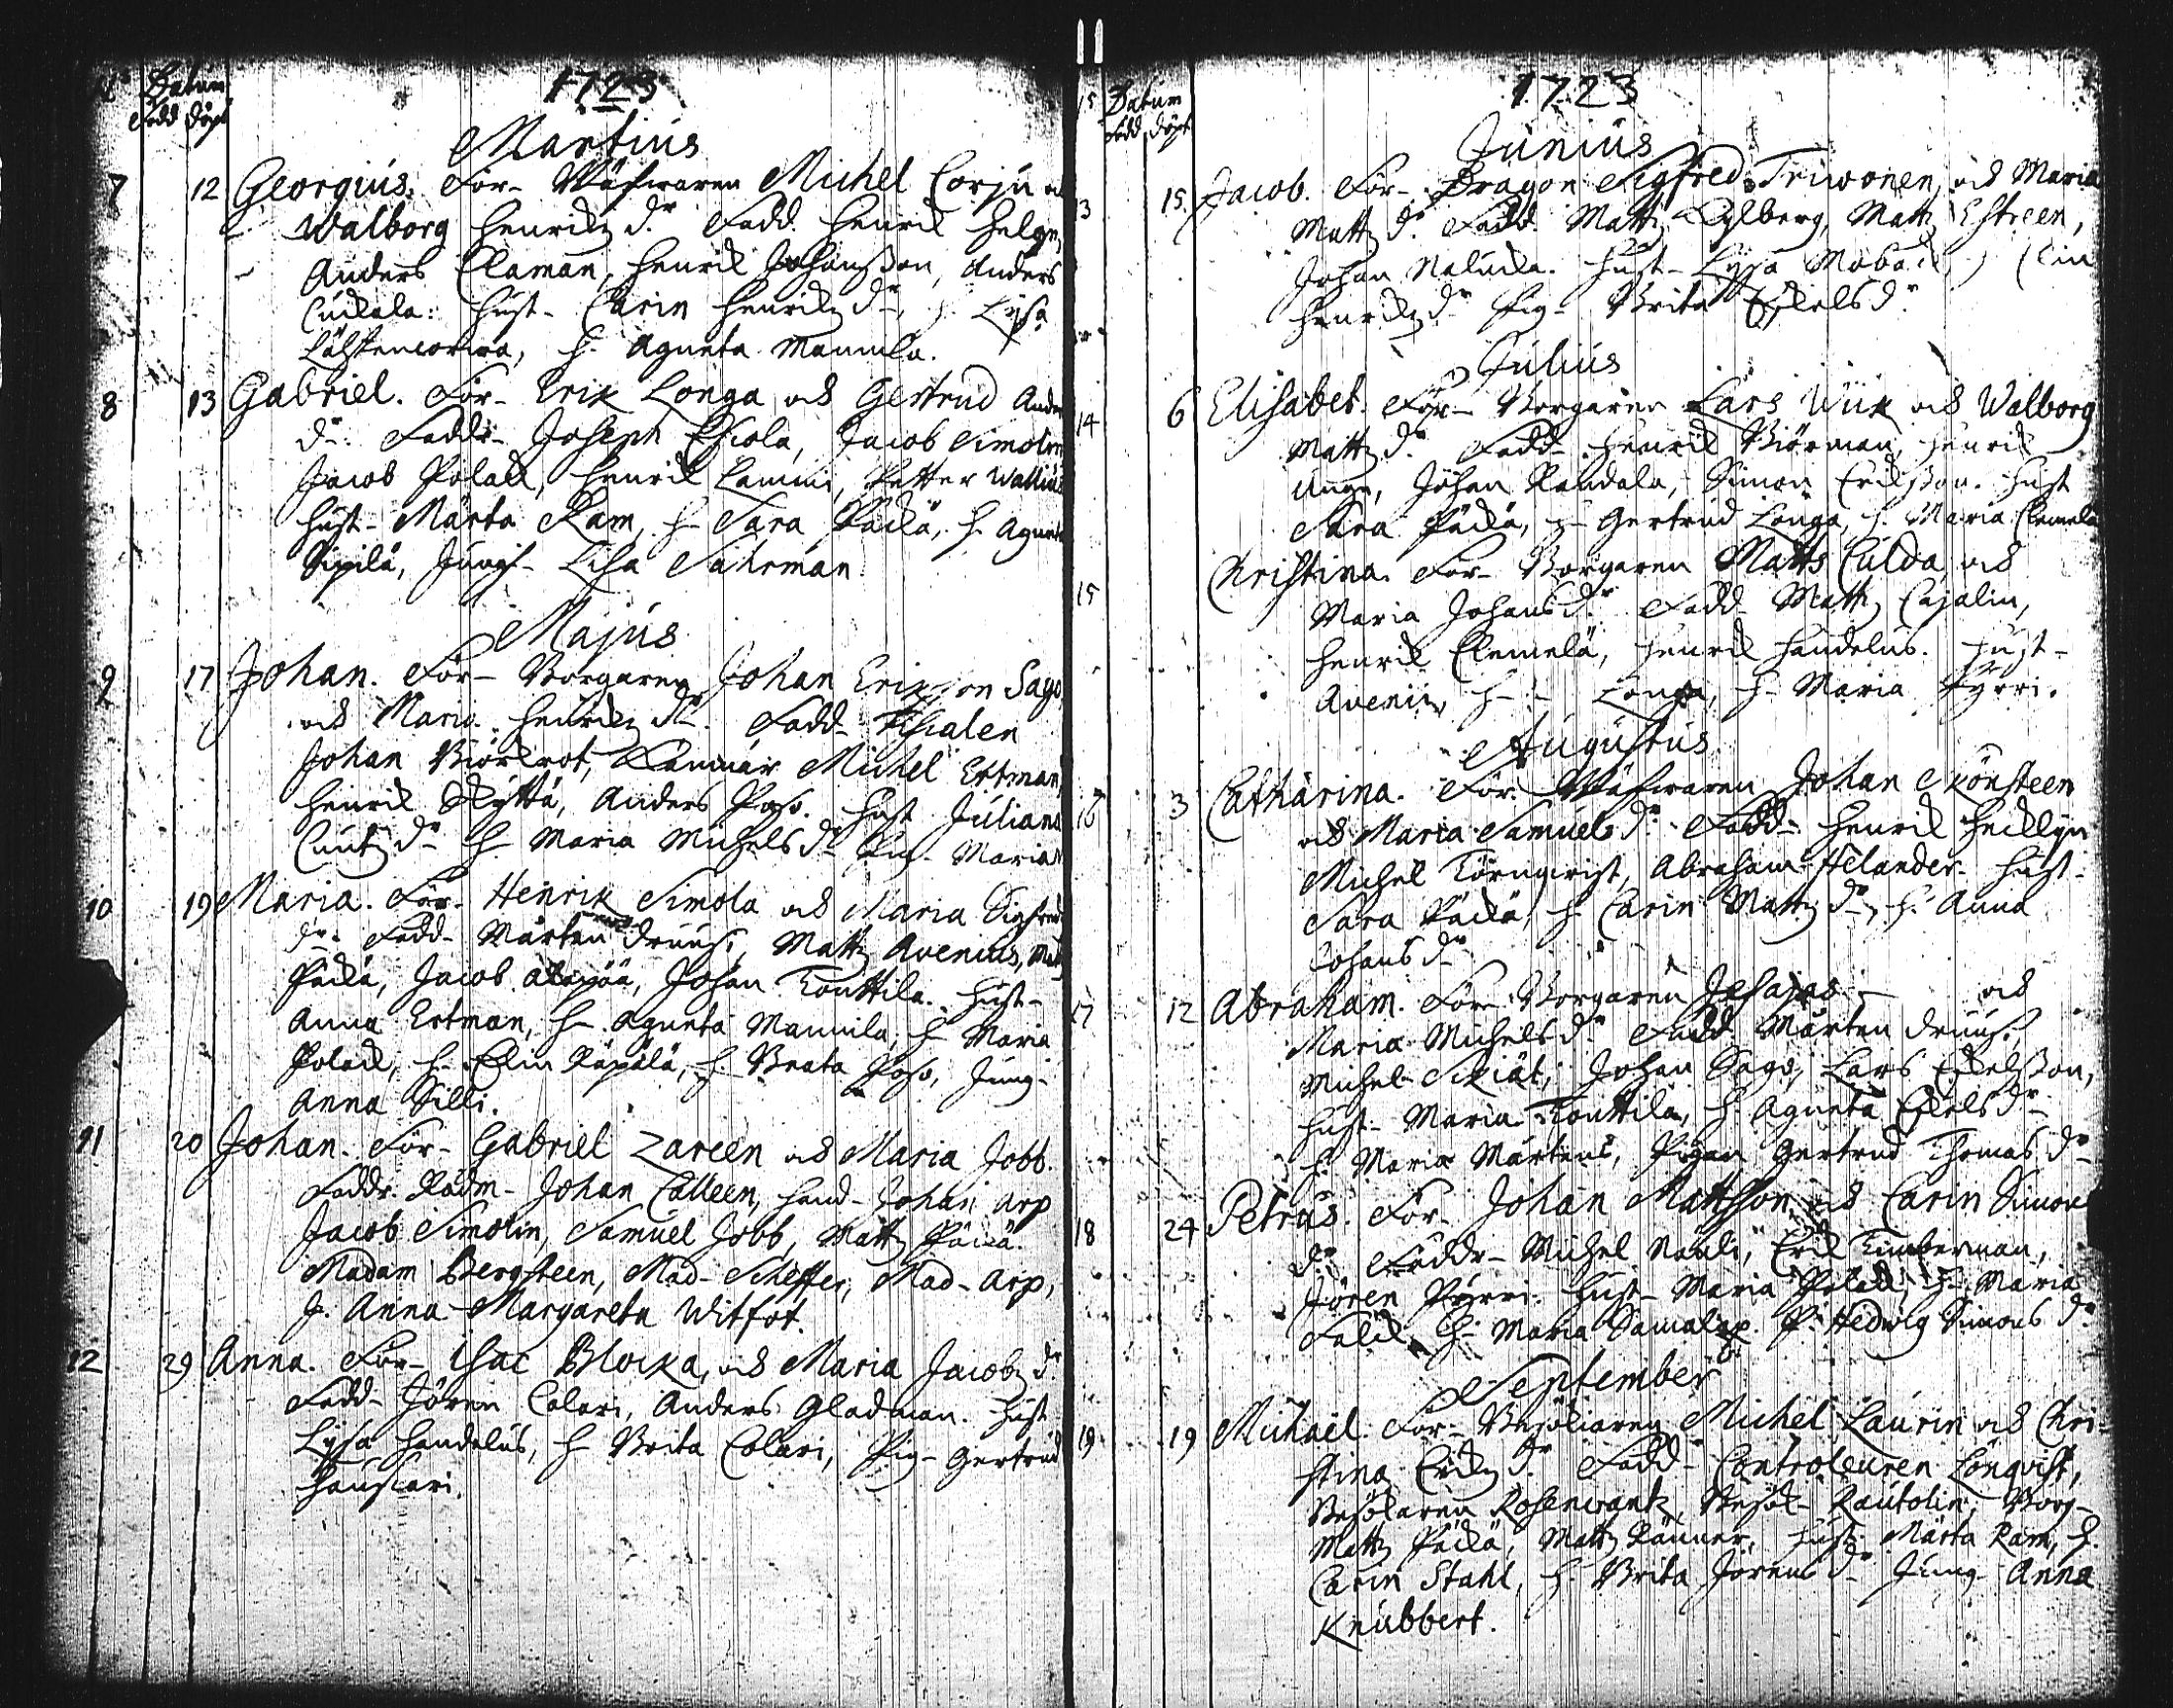 Datum
Född döpt
1723
Martius
7 12 Georgius. För- Michel Corju
Walborg Henriks dr Fadd. Henrik Helge,
Anders Claman, Henrik Johansson, Anders
Cuckala: Hust- Carin Henriks dr, h. Lysa
h. Agneta Mannila.
8 13 Gabriel. För- Erik Longa och Gertrud Anders
dr. Faddr- Joseph Jacob Simolin
Jacob Polack, Henrik Lammi, Petter Wallius
Hust- Märta Ram, h- Sara Päckä, h. Agneta
Sipilä, Jungf- Lisa Sahrman.
Majus
9 17 Johan. För- Borgaren Johan Erixson Sago
och Maria Henriks dr. Fadd- Fiscalen
Johan Biörkrot, Michel Ertman
Henrik Skyttä, Anders Poso. Hust Juliana
Cnuts dr h. Maria Michels dr Pig. Maria
10 19 Maria. För- Henrik Simola och Maria Sigfreds
dr. Fadd- Mårten Druus, Matts Avenius, Matts
Päckä, Jacob Alapää, Johan Konttila. Hust-
Anna Ertman, h- Agneta Mannila, h Maria
Polack, h- Elin Käpälä, h- Beata Poso, Jung-
Anna Silli.
11 20 Johan. För- Gabriel Zareen och Maria Jobb.
Faddr. Rådm- Johan Calleen, Hand- Johan Arp
Jacob Simolin, Samuel Jobb, Matts Päckä.
Madam Bergsteen, Mad- Scheffer, Mad- Arp,
J. Anna Margareta Witfot.
12 29 Anna. För- Isac Blocka, och Maria Jacobs dr
Fadd- Jören Colari, Anders Gladman. Hust
Lysa Handelus, h Brita Colari, Pig- Gertrud
Hauscari.
15 Datum
Född döpt
1723
Junius
13 15. Jacob. För- Dragon Sigfred Triwonen, och Maria
Matts dr. Fadd. Matts Kylberg, Matts Estreen,
Johan Nalucka. Hust- Lysa
Henriks dr Pig- Brita Eskels dr
Julius
14 6 Elisabet. För- Borgaren Lars Wiik och Walborg
Matts dr. Fadd- Henrik Biörman, Henrik
Unge, Johan Randala, Simon Eriksson. Hust
Sara Päckä, h- Gertrud Longa, h. Maria Clemelä
15 Christina. För- Borgaren Matts Culda och
Maria Johans dr. Fadd- Matts Cajalin,
Henrik Clemelä, Henrik Handelus. Hust-
Avenii, h- - Longa, h- Maria Pyrri.
Augustus
16 3 Catharina. För- Johan Skönsteen
och Maria Samuels dr. Fadd- Henrik Hecklyn
Michel Törnqvist, Abraham Helander- Hust-
Sara Päckä, h. Carin Matts dr, h. Anna
Johans dr
17 12 Abraham. För- Borgaren Jesajas - och
Maria Michels dr Fadd Mårten Druus,
Michel Skiät, Johan Sago, Lars Eskelsson,
Hust- Maria Konttila, h. Agneta Eskels dr
h. Maria Mårtens, Pigan Gertrud Thomas dr
18 24 Petrus. För- Johan Mattsson och Carin Simons
dr Faddr- Michel Nauli, Erik Timberman,
Jören Pyrri. Hust- Maria Polack, h- Maria
Falck, h- Maria P. Hedwig Simons dr
September
19 19 Michael. För- Besökaren Michel Laurin och Chri-
stina Eriks dr. Fadd- Controleuren Lönqvist,
Besökaren Rosenvantz, Besök- Rautolin, Borg-
Matts Päckä, Matts Känner, Hust- Märta Ram, h.
Carin Stahl, h. Brita Jörens dr Jung- Anna
Knubbert.